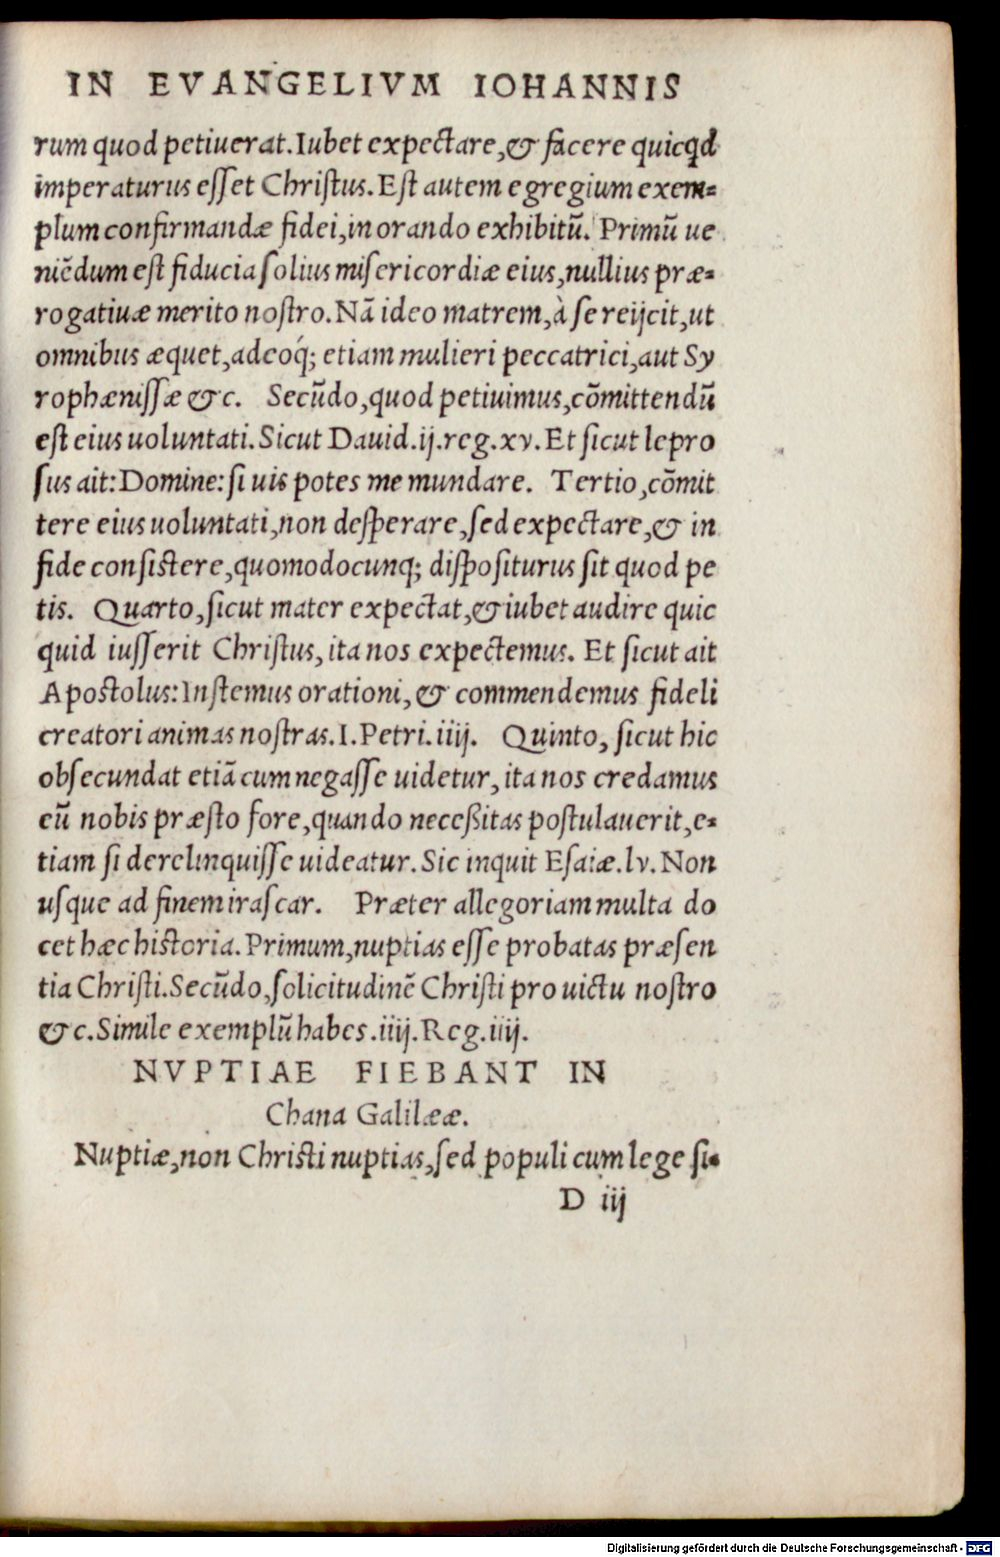 IN EVANGELIVM IOHANNIS
rum quod petiuerat. Iubet expectare, & facere quicqd
imperaturus esset Christus. Est autem egregium exem-
plum confirmandæ fidei, in orando exhibitū. Primū ue
niēdum est fiducia solius misericordiæ eius, nullius præ-
rogatiuæ merito nostro. Nā ideo matrem, à se reijcit, ut
omnibus æquet, adeoq́; etiam mulieri peccatrici, aut Sy
rophænissæ &c. Secūdo, quod petiuimus, cōmittendū
est eius uoluntati. Sicut Dauid. ij. reg. xv. Et sicut lepro
sus ait: Domine: si uis potes me mundare. Tertio, cōmit
tere eius uoluntati, non desperare, sed expectare, & in
fide consistere, quomodocunq; dispositurus sit quod pe
tis. Quarto, sicut mater expectat, & iubet audire quic
quid iusserit Christus, ita nos expectemus. Et sicut ait
Apostolus: Instemus orationi, & commendemus fideli
creatori animas nostras. I. Petri. iiij. Quinto, sicut hic
obsecundat etiā cum negasse uidetur, ita nos credamus
eū nobis præsto fore, quando neceßitas postulauerit, e-
tiam si derelinquisse uideatur. Sic inquit Esaiæ. lv. Non
usque ad finem irascar. Præter allegoriam multa do
cet hæc historia. Primum, nuptias esse probatas præsen
tia Christi. Secūdo, solicitudinē Christi pro uictu nostro
&c. Simile exemplū habes. iiij. Reg. iiij.
NVPTIAE FIEBANT IN
Chana Galilææ.
Nuptiæ, non Christi nuptias, sed populi cum lege si-
D iij
Digitalisierung gefördert durch die Deutsche Forschungsgemeinschaft - DFG